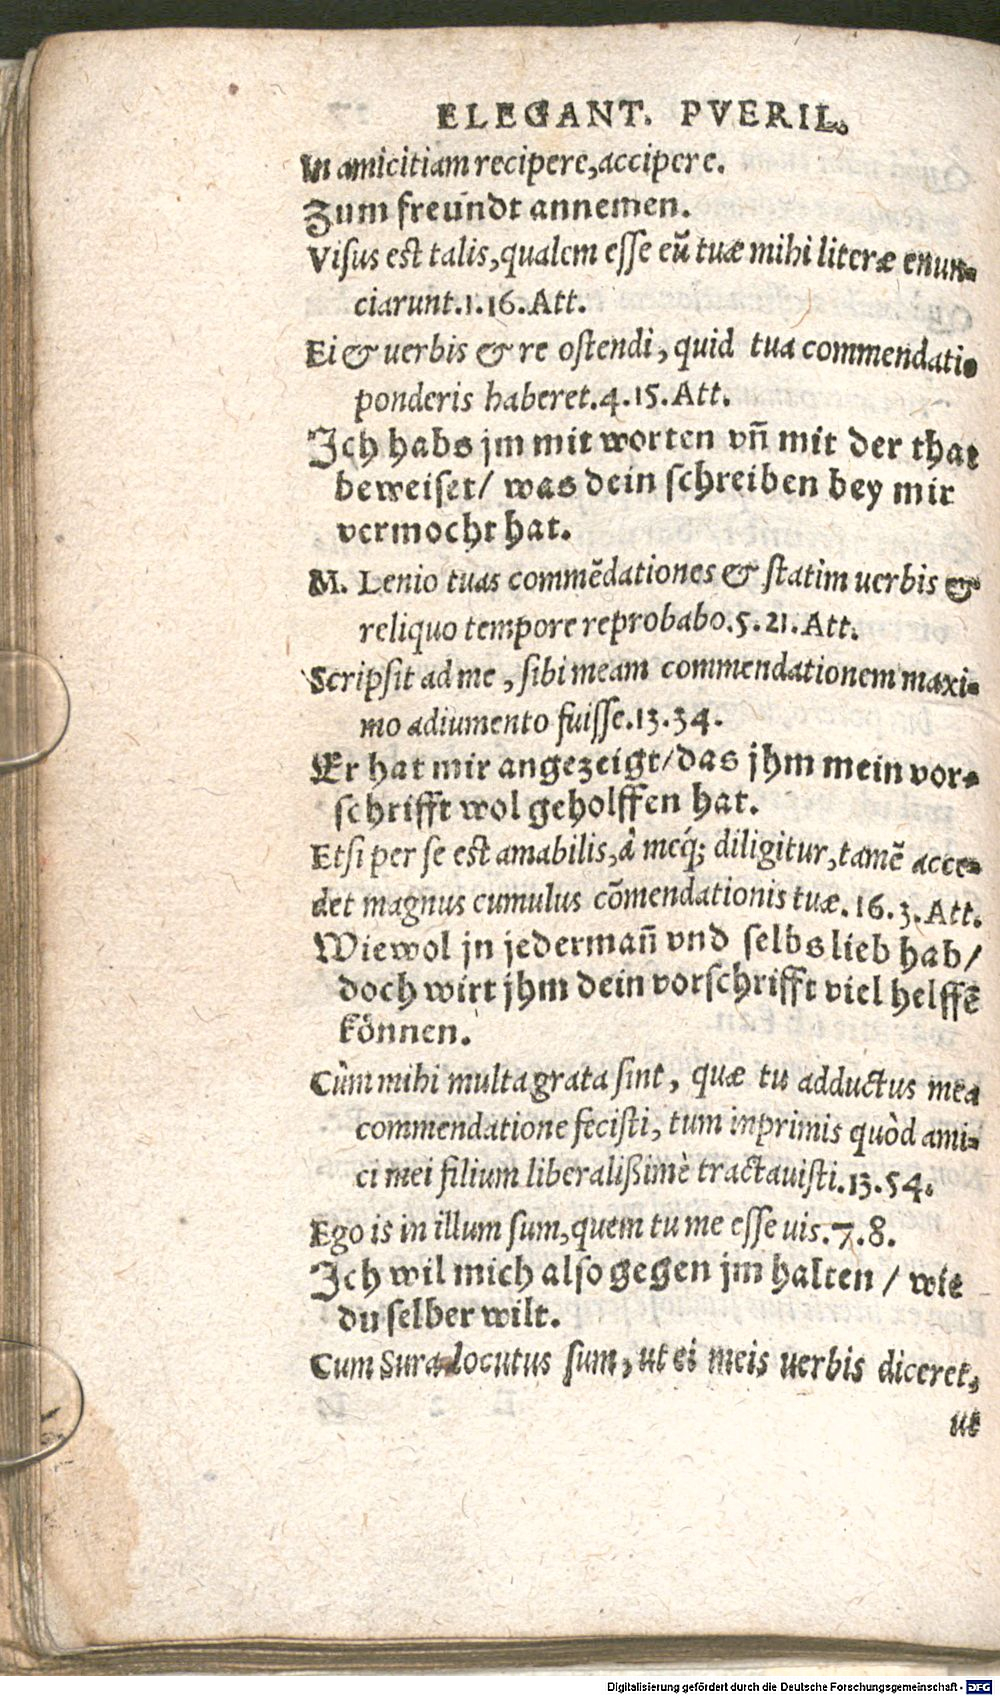 ELEGANT. PVERIL.
In amicitiam recipere, accipere.
Zum freündt annemen.
Visus est talis, qualem esse eũ tuæ mihi literæ enun-
ciarunt.1.16.Att.
Ei & uerbis & re ostendi, quid tua commendati-
ponderis haberet.4.15.Att.
Ich habs jm mit worten vñ mit der that
beweiset/ was dein schreiben bey mir
vermocht hat.
M. Lenio tuas commẽdationes & statim uerbis &
reliquo tempore reprobabo.5.21.Att.
Scripsit ad me, sibi meam commendationem maxi-
mo adiumento fuisse.13.34.
Er hat mir angezeigt/das jhm mein vor-
schrifft wol geholffen hat.
Etsi per se est amabilis, à meq́; diligitur, tamẽ acce-
det magnus cumulus cõmendationis tuæ.16.3.Att.
Wiewol jn jedermañ vnd selbs lieb hab/
doch wirt jhm dein vorschrifft viel helffẽ
können.
Cùm mihi multa grata sint, quæ tu adductus mea
commendatione fecisti, tum inprimis quòd ami-
ci mei filium liberalißimè tractauisti.13.54.
Ego is in illum sum, quem tu me esse uis.7.8.
Ich wil mich also gegen jm halten / wie
du selber wilt.
Cum Sura locutus sum, ut ei meis uerbis diceret,
ut
Digitalisierung gefördert durch die Deutsche Forschungsgemeinschaft - DFG